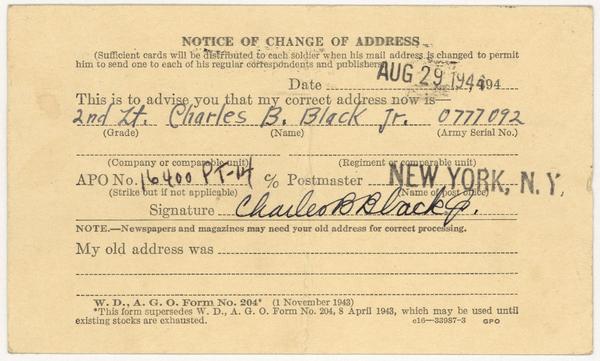 NOTICE OF CHANGE OF ADDRESS
(Sufficient cards will be distributed to each soldier when his mail address is changed to permit
him to send one to each of his regular correspondents and publishers)
Date AUG 29 1944 194
This is to advise you that my correct address now is—
2nd Lt. Charles B. Black Jr. 0777092
(Grade) (Name) (Army Serial No.)
(Company or comparable unit) (Regiment or comparable unit)
APO No. 16400 PT-14 c/o Postmaster NEW YORK, N.Y.
(Strike out if not applicable) (Name of post office)
Signature Charles B Black Jr.
NOTE.—Newspapers and magazines may need your old address for correct processing.
My old address was
W. D., A. G. O. Form No. 204* (1 November 1943)
*This form supersedes W. D., A. G. O. Form No. 204, 8 April 1943, which may be used until
existing stocks are exhausted. c16—33987-3 GPO